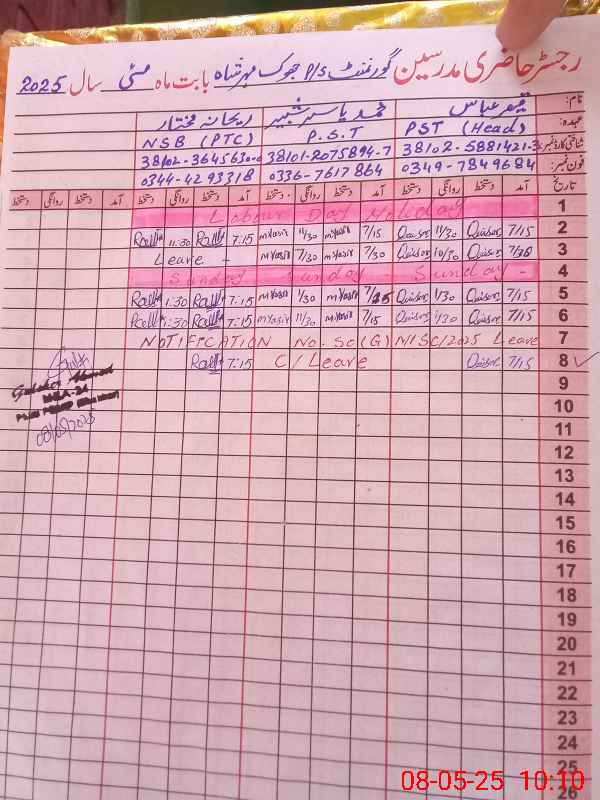 رجسٹر حاضری مدرسین گورنمنٹ P/S جھوک مہر شاہ بابت ماہ مئی سال 2025
نام: قیصر عباس محمد یاسر شبیر ریحانہ مختار
عہدہ: PST (Head) P.S.T NSB (PTC)
شناختی کارڈ نمبر: 38102-5881421-3 38101-2075894-7 38102-3645630-0
فون نمبر: 0349-7849684 0336-7617864 0344-4293318
تاریخ آمد دستخط روانگی دستخط آمد دستخط روانگی دستخط آمد دستخط روانگی دستخط آمد دستخط روانگی دستخط
1 Labour Day Holiday
2 7/15 Qaisar 11/30 Qaisar 7/15 myasir 11/30 myasir 7:15 11:30
3 Qaisar 10/30 Qaisar 7/30 myasir 7/30 myasir Leave -
4 Sunday Sunday - Sunday -
5 7/15 Qaisar 1/30 Qaisar myasir 1/30 myasir 7:15 1:30
6 7/15 Qaisar 1/30 Qaisar 7/15 myasir 11/30 myasir 7:15 1:30
7 NOTIFICATION No. SO(G)N/SC/2025 Leave
8 7/15 Qaisar C/Leave 7:15
9
MEA-24
08/05/2025
10
11
12
13
14
15
16
17
18
19
20
21
22
23
24
25
26
08-05-25 10:10